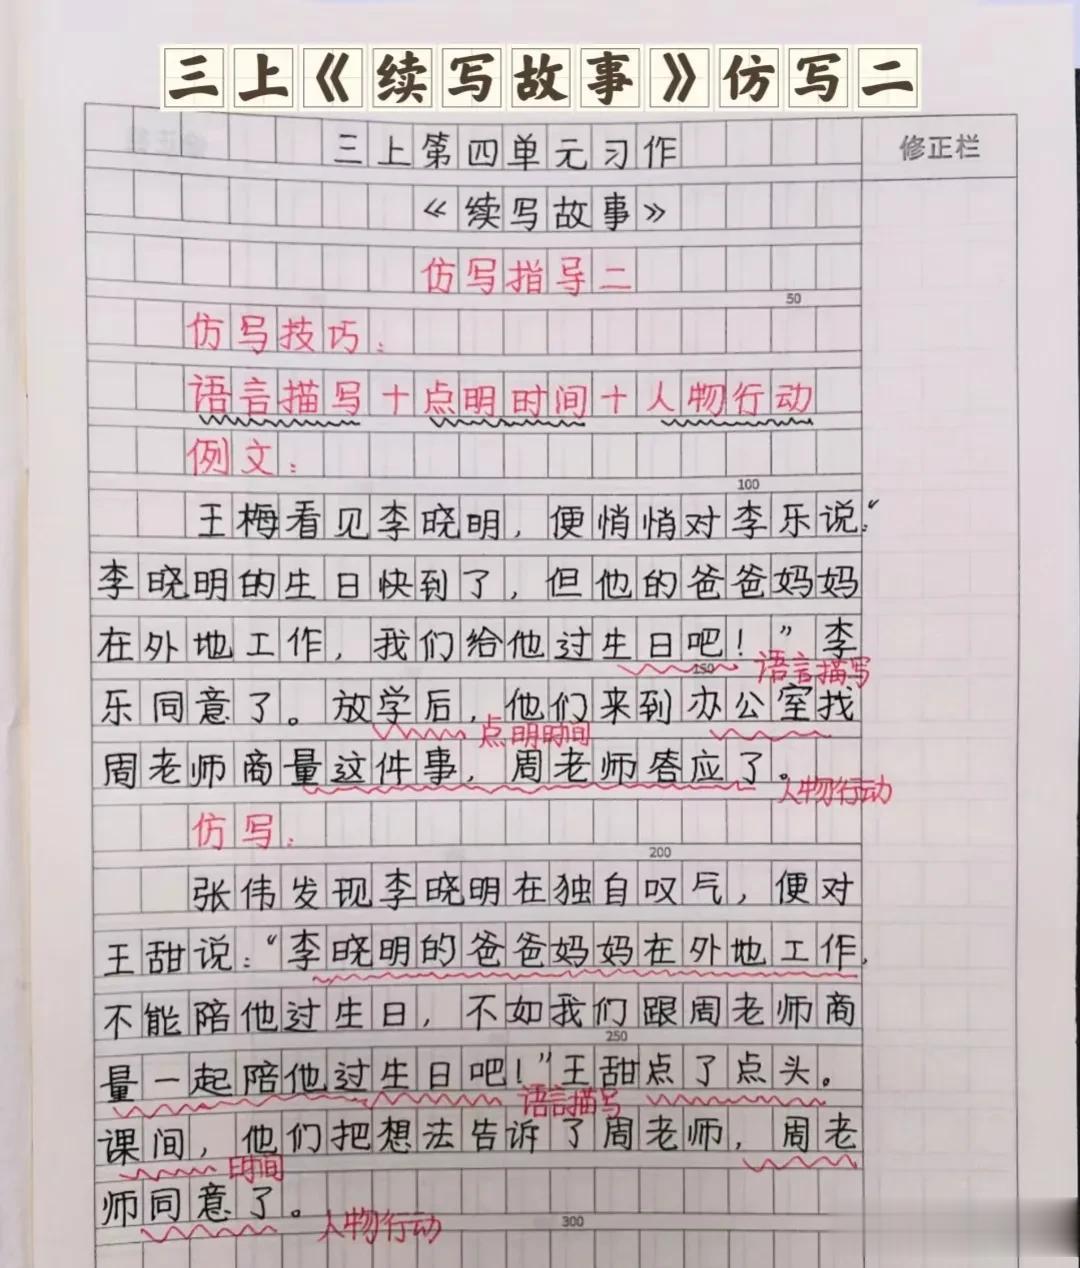 三上《续写故事》仿写二
三上第四单元习作
修正栏
《续写故事》
仿写指导二
50
仿写技巧：
语言描写+点明时间+人物行动
例文：
100
王梅看见李晓明，便悄悄对李乐说：“
李晓明的生日快到了，但他的爸爸妈妈
在外地工作，我们给他过生日吧！”李
150
语言描写
乐同意了。放学后，他们来到办公室找
点明时间
周老师商量这件事，周老师答应了。
人物行动
仿写：
200
张伟发现李晓明在独自叹气，便对
王甜说：“李晓明的爸爸妈妈在外地工作，
不能陪他过生日，不如我们跟周老师商
250
量一起陪他过生日吧！”王甜点了点头。
语言描写
课间，他们把想法告诉了周老师，周老
时间
师同意了。
人物行动
300